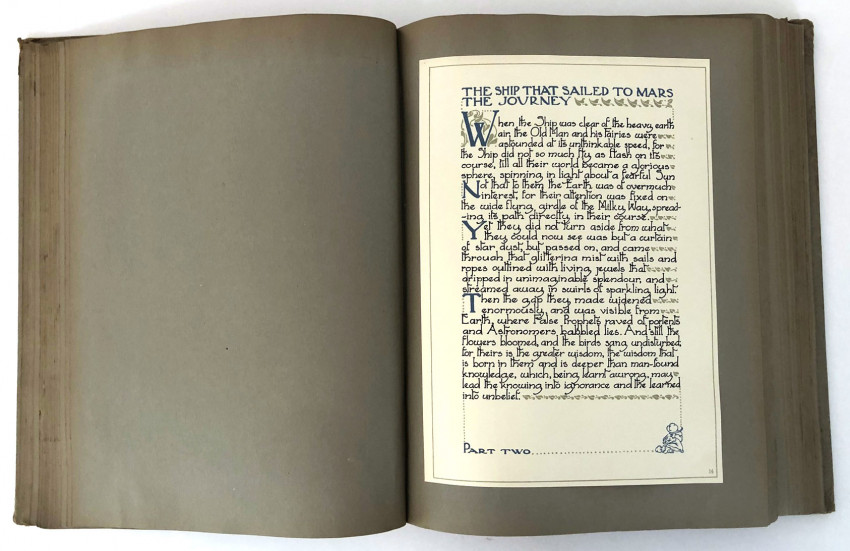 THE SHIP THAT SAILED TO MARS
THE JOURNEY
When the Ship was clear of the heavy earth
air, the Old Man and his fairies were
astounded at its unthinkable speed, for
the Ship did not so much fly, as flash on its
course, till all their world became a glorious
sphere, spinning in light about a fearful Sun
Not that to them the Earth was of overmuch
interest, for their attention was fixed on
the wide flung girdle of the Milky Way, spread-
-ing its path directly in their course.
Yet they did not turn aside from what
they could now see was but a curtain
of star dust, but passed on, and came
through that glittering mist with sails and
ropes outlined with living jewels that
dripped in unimaginable splendour, and
streamed away in swirls of sparkling light.
Then the gap they made widened
enormously, and was visible from
Earth, where False Prophets raved of portents
and Astronomers babbled lies. And still the
flowers bloomed, and the birds sang undisturbed;
for theirs is the greater wisdom, the wisdom that
is born in them and is deeper than man-found
knowledge, which, being learnt awrong, may
lead the knowing into ignorance and the learned
into unbelief.
PART TWO